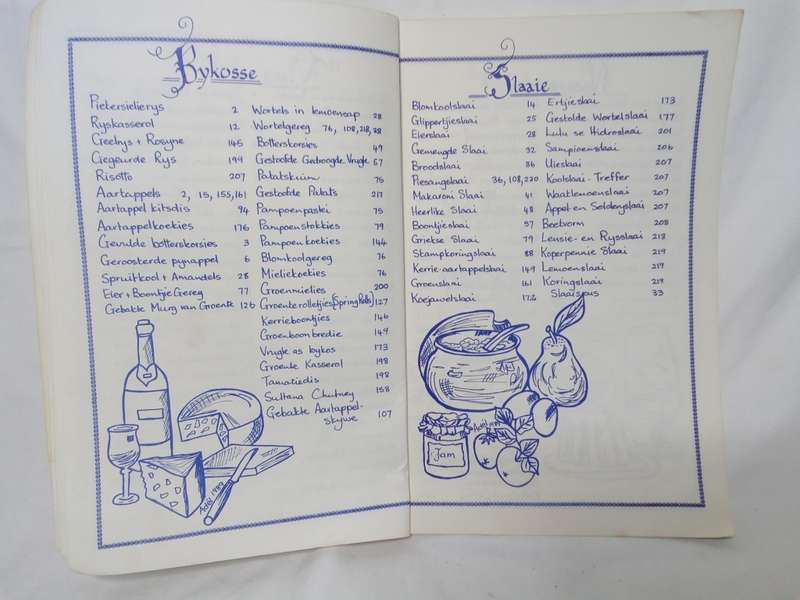 Bykosse
Pietersielierys 2
Ryskasserol 12
Creelrys + Rosyne 145
Ciegeurde Rys 199
Risotto 207
Aartappels 2, 15, 155, 161
Aartappel kitsdis 94
Aartappelkoekies 176
Gevulde botterskorsies 3
Geroosterde pynappel 6
Spruitkool + Amandels 28
Eier + Boontjie Gereg 77
Gebakte Murg van Groente 126
Wortels in lemoensap 28
Wortelgereg 76, 108, 218, 28
Botterskorsies 49
Gestoofde Gedroogde Vrugte 67
Patatskuim 75
Gestoofde Patats 217
Pampoenpastei 75
Pampoenstokkies 79
Pampoenkoekies 144
Blomkoolgereg 76
Mieliekoekies 76
Groenmielies 200
Groenterolletjies (Spring Rolls) 127
Kerrieboontjies 146
Groenboonbredie 149
Vrugte as bykos 173
Groente Kasserol 198
Tamatiedis 198
Sultana Chutney 158
Gebakte Aartappel-
skywe 107
Adri 1999
Slaaie
Blomkoolslaai 14
Glippertjieslaai 25
Eierslaai 28
Gemengde Slaai 32
Broodslaai 36
Piesangslaai 36, 108, 220
Makaroni Slaai 41
Heerlike Slaai 48
Boontjieslaai 57
Griekse Slaai 79
Stampkoringslaai 88
Kerrie-aartappelslaai 149
Groenslaai 161
Koejawelslaai 172
Ertjieslaai 173
Gestolde Wortelslaai 177
Lulu se Hidroslaai 201
Sampioenslaai 206
Uieslaai 207
Koolslaai-Treffer 207
Waatlemoenslaai 207
Appel-en Selderyslaai 207
Beetvorm 208
Lensie-en Rysslaai 218
Koperpennie Slaai 219
Lemoenslaai 219
Koringslaai 219
Slaaisous 33
Jam